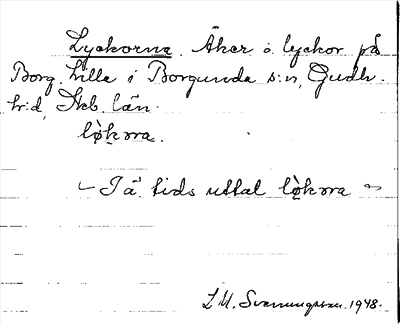 Lyckorna. Åker o. lyckor på
Borg. Lilla i Borgunda s:n, Gudh.
h:d, Skb. län.
lø̀kɷrna.
I ä. tids uttal lø̀kɷrna
L M. Svenungsson. 1948.